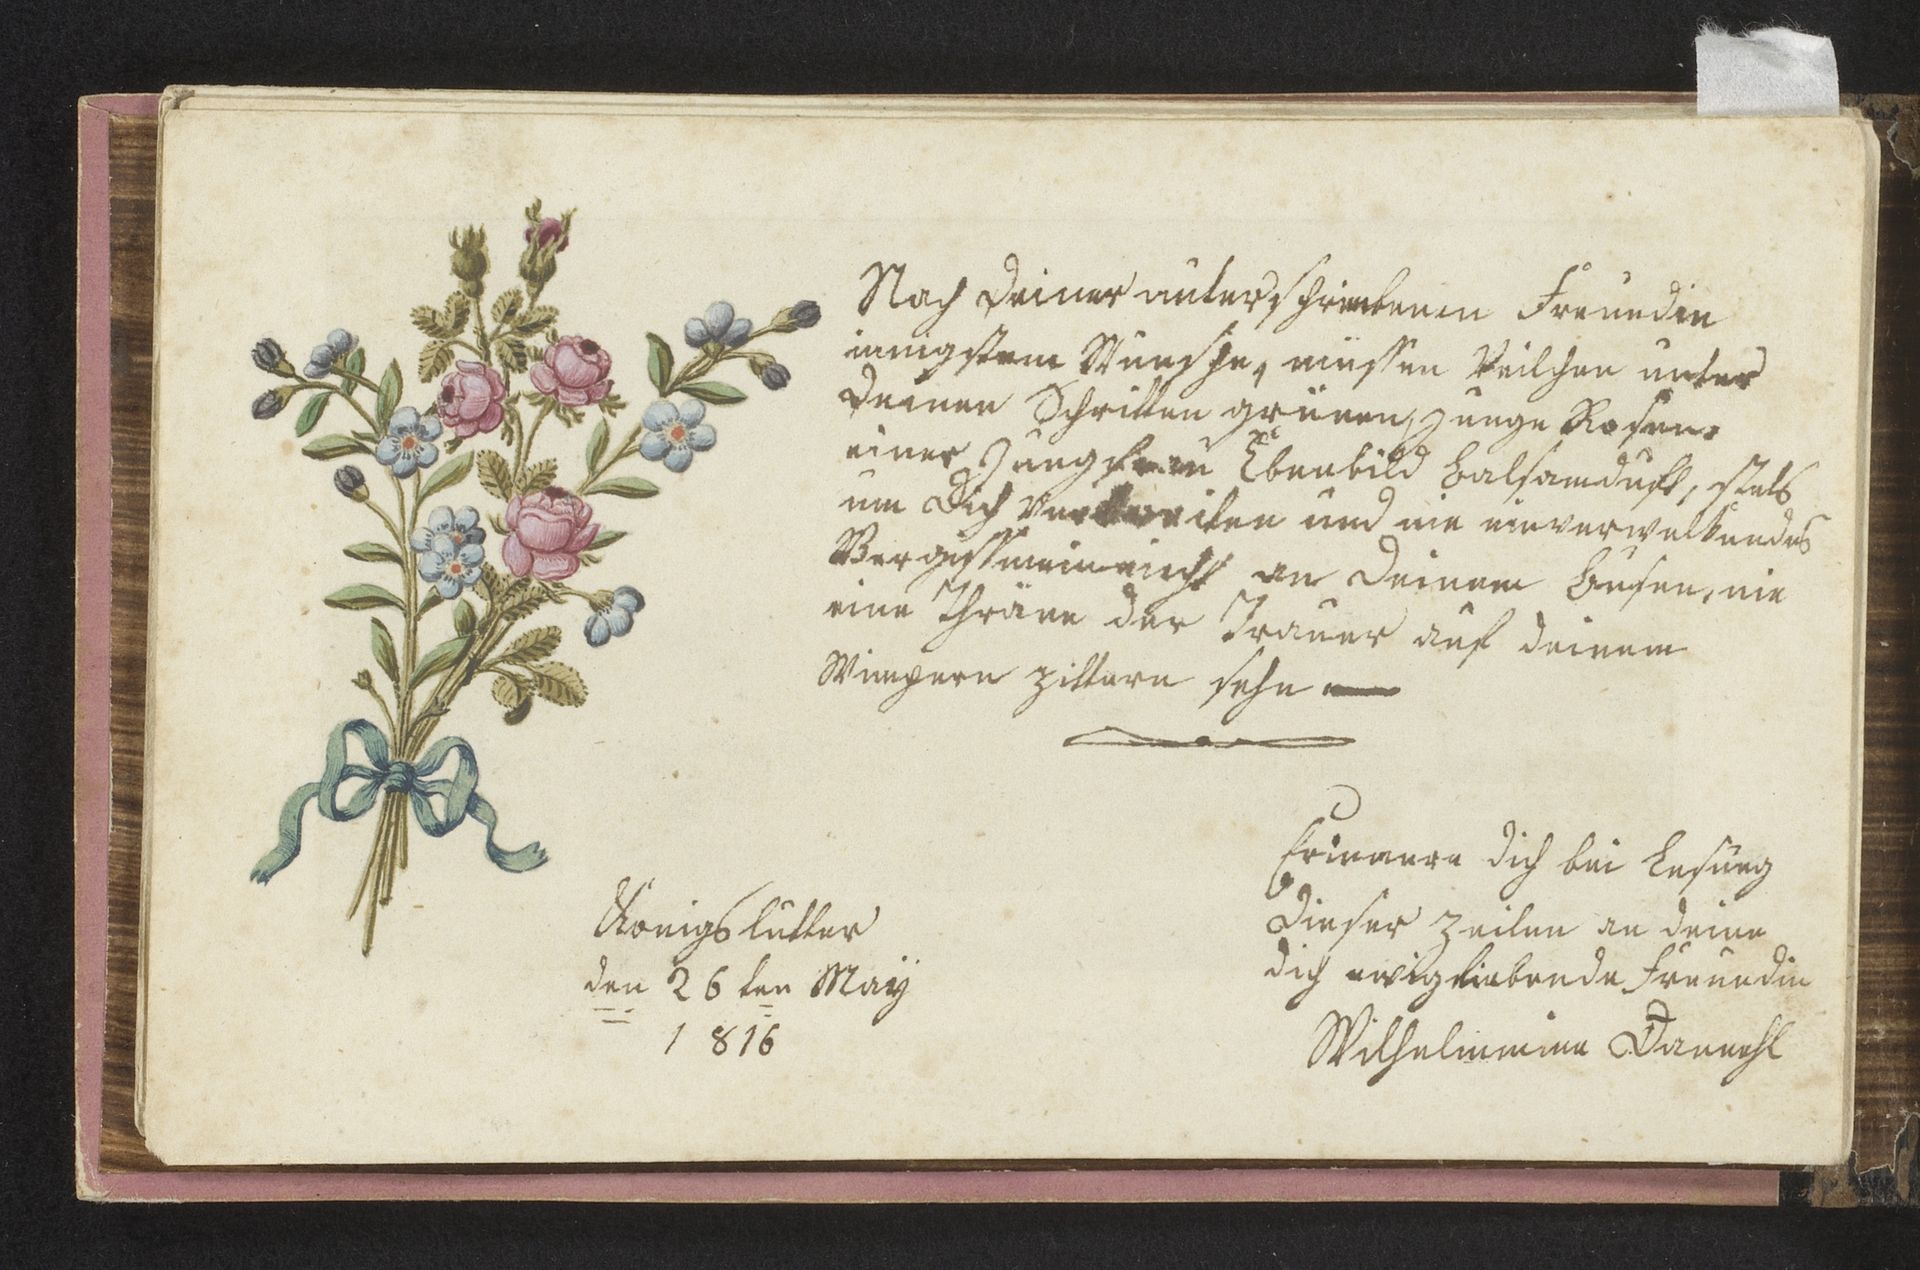 Nach Deiner unterschriebenen Freundin
innigstem Wunsche, müssen Veilchen unter
Deinen Schritten grünen, junge Rosen,
einer Jungfrau Ebenbild Balsamduft, stets
um Dich verbreiten und nie ein verwelkendes
Vergissmeinnicht an Deinem Busen, nie
eine Thräne der Trauer auf deinem
Wimpern zittern sehn
Königslutter
den 26ten Maÿ
1816
Erinnere dich bei Lesung
dieser Zeilen an deine
dich ewigliebende Freundin
Wilhelminine Dannehl